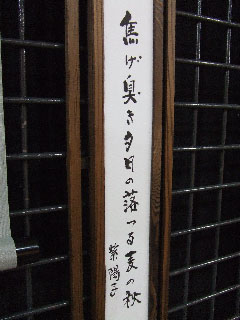 焦げ臭き夕日の落つる麦の秋
紫陽子